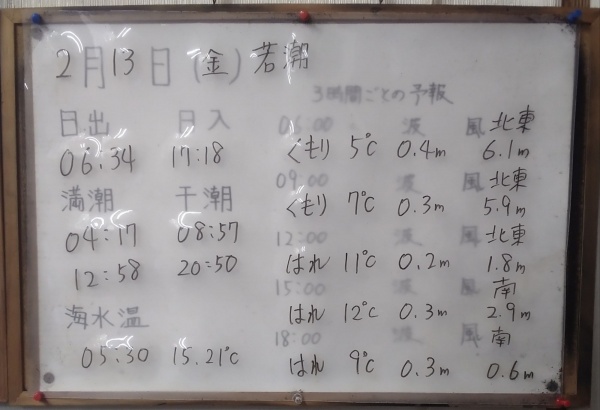 2月13日(金)若潮
日出 日入
06:34 17:18
満潮 干潮
04:17 08:57
12:58 20:50
海水温
05:30 15.21℃
3時間ごとの予報
06:00 波 風 北東
くもり 5℃ 0.4m 6.1m
09:00 波 風 北東
くもり 7℃ 0.3m 5.9m
12:00 波 風 北東
はれ 11℃ 0.2m 1.8m
15:00 波 風 南
はれ 12℃ 0.3m 2.9m
18:00 波 風 南
はれ 9℃ 0.3m 0.6m